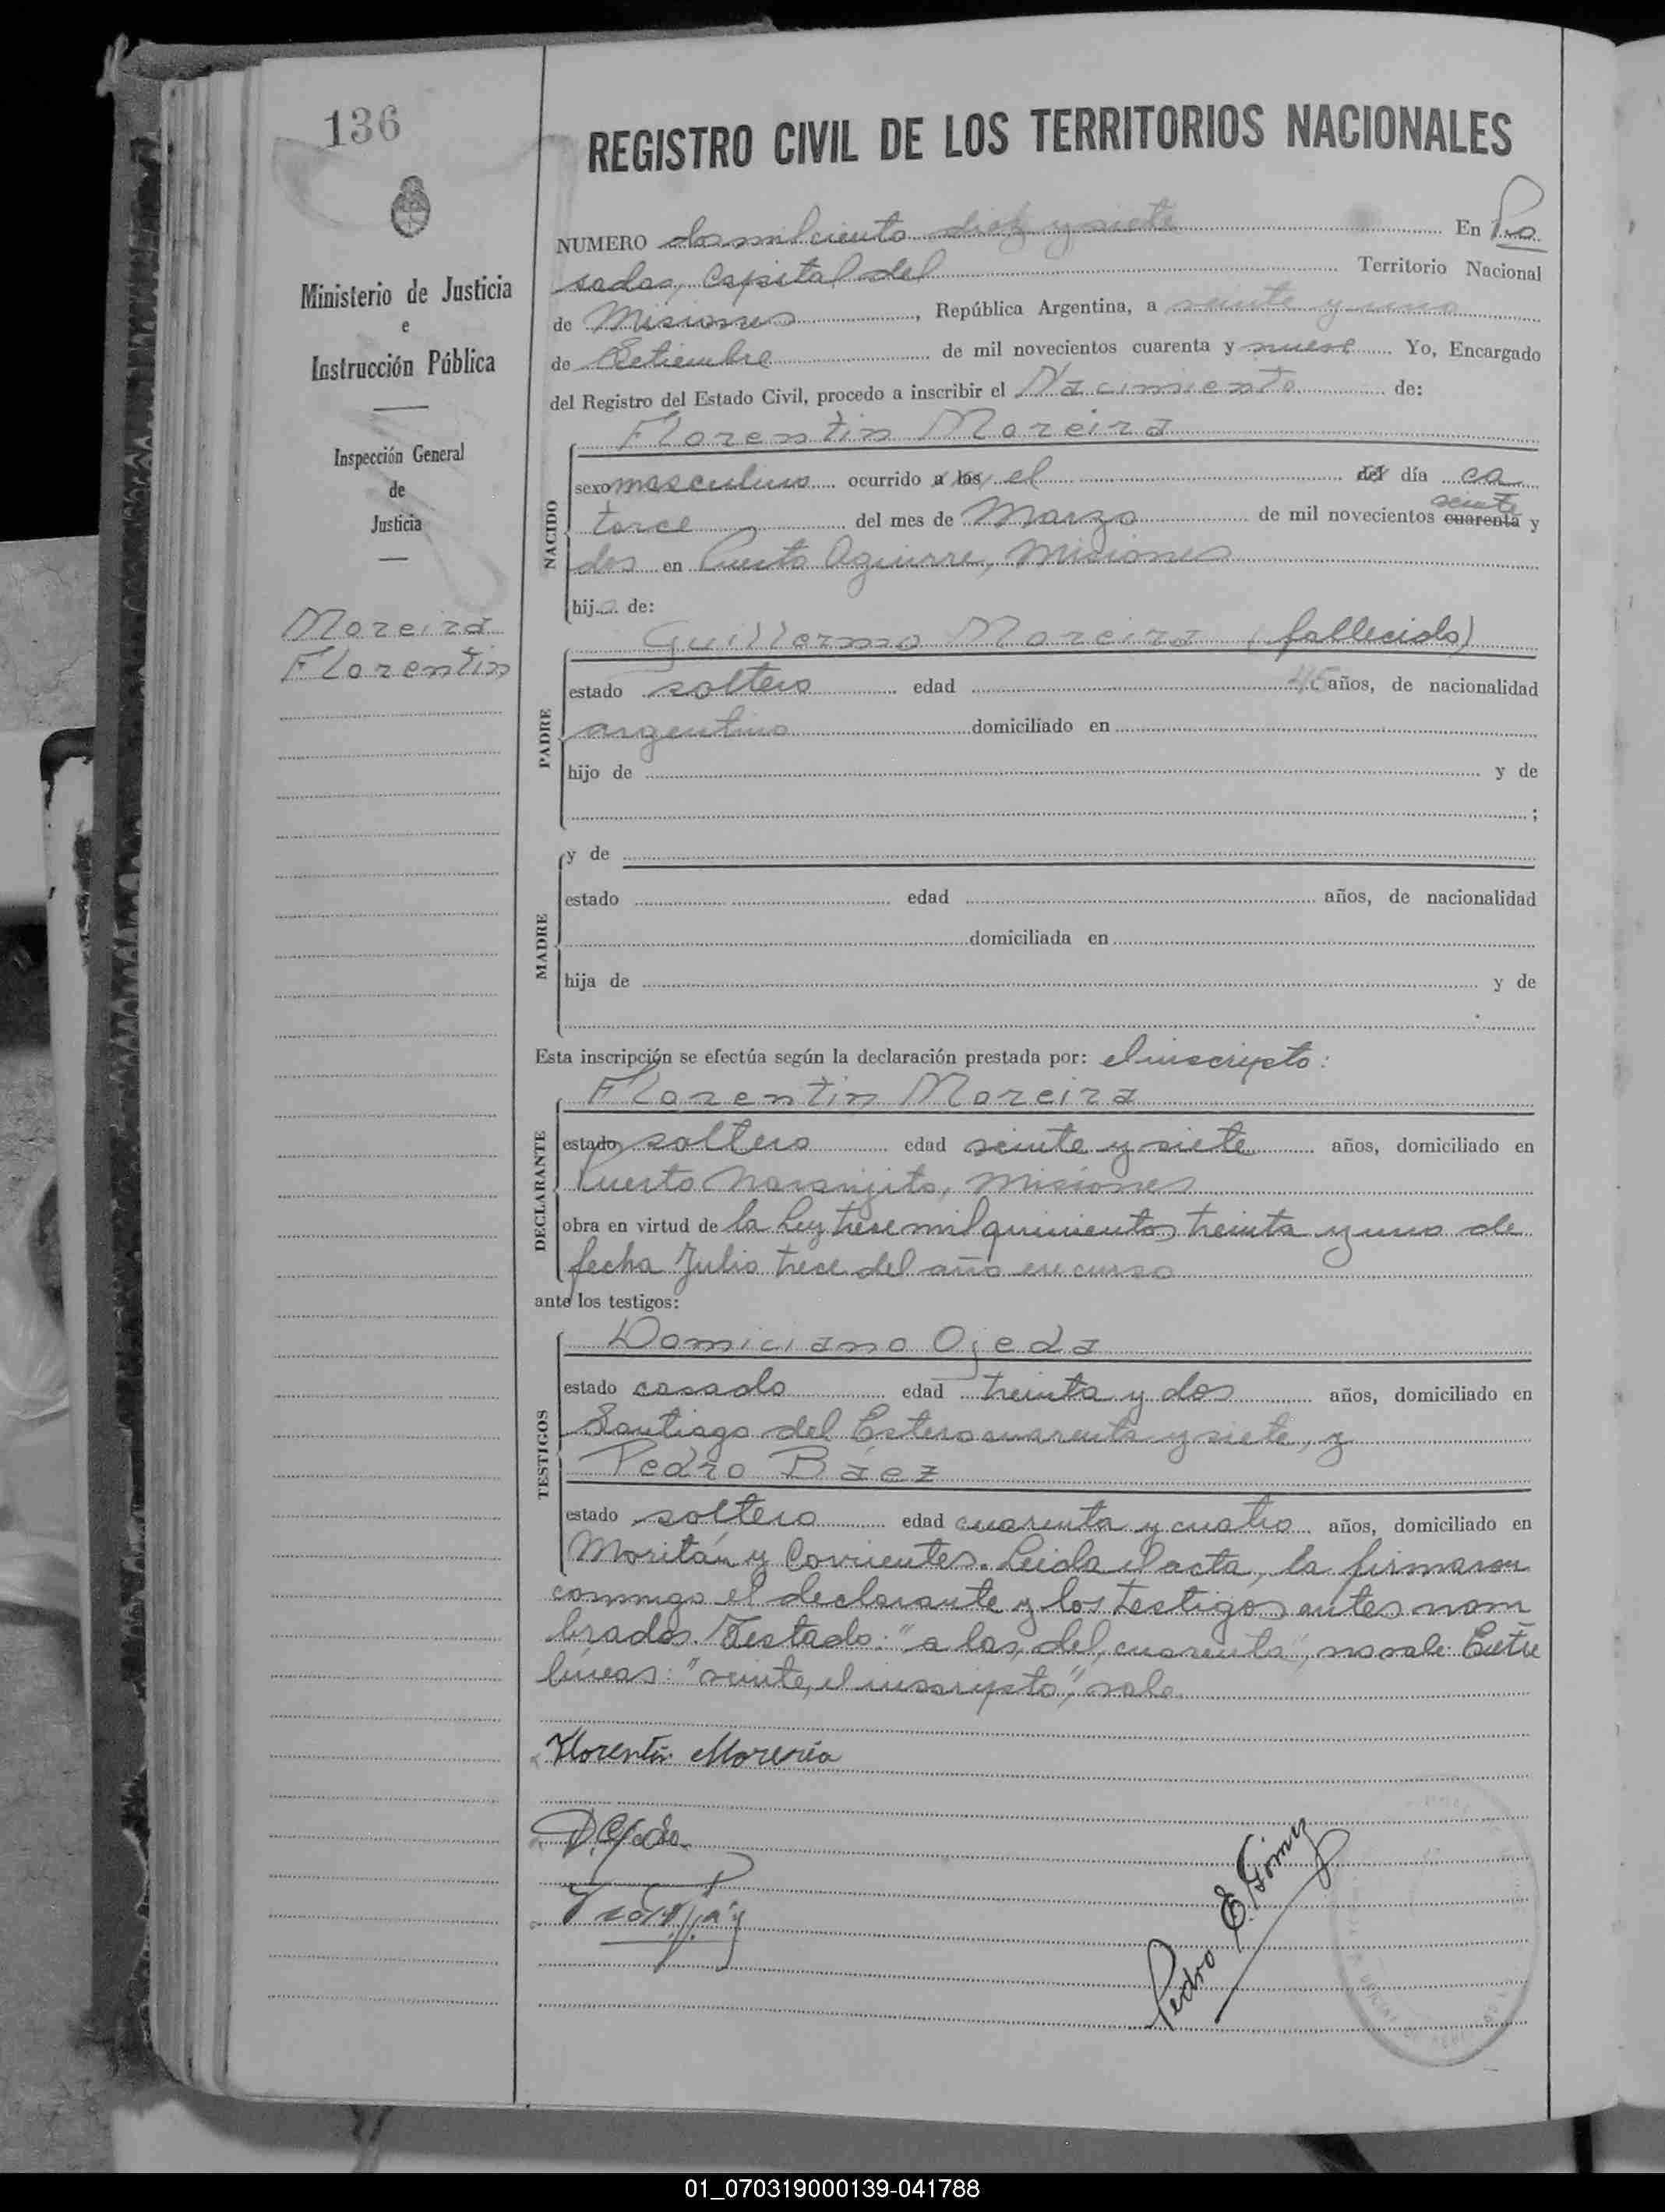 136
REGISTRO CIVIL DE LOS TERRITORIOS NACIONALES
NUMERO dos mil ciento diez y siete En Po
sadas, Capital del Territorio Nacional
de Misiones, República Argentina, a veinte y uno
de Setiembre de mil novecientos cuarenta y nueve Yo, Encargado
del Registro del Estado Civil, procedo a inscribir el Nacimiento de:
Ministerio de Justicia
e
Instrucción Pública
Inspección General
de
Justicia
Moreira
Florentin
NACIDO
Florentin Moreira
sexo masculino ocurrido a las el del día ca
torce del mes de Marzo de mil novecientos cuarenta veinte y
dos en Puerto Aguirre, Misiones
hijo de:
PADRE
Guillermo Moreira (fallecido)
estado soltero edad 45 años, de nacionalidad
argentino domiciliado en
hijo de y de
;
MADRE
y de
estado edad años, de nacionalidad
domiciliada en
hija de y de
Esta inscripción se efectúa según la declaración prestada por: el inscripto:
DECLARANTE
Florentin Moreira
estado soltero edad veinte y siete años, domiciliado en
Puerto Naranjito, Misiones
obra en virtud de la Ley trece mil quinientos treinta y uno de
fecha Julio trece del año en curso
ante los testigos:
TESTIGOS
Domiciano Ojeda
estado casado edad treinta y dos años, domiciliado en
Santiago del Estero cuarenta y siete, y
Pedro Báez
estado soltero edad cuarenta y cuatro años, domiciliado en
Moritán y Corrientes. Leida el acta, la firmaron
conmigo el declarante y los testigos antes nom
brados. Testado: "a las, del, cuarenta", no vale. Entre
líneas: "veinte, el inscripto", vale.
Florentín Moreria
D. Ojeda
Pedro E. Gómez
01_070319000139-041788